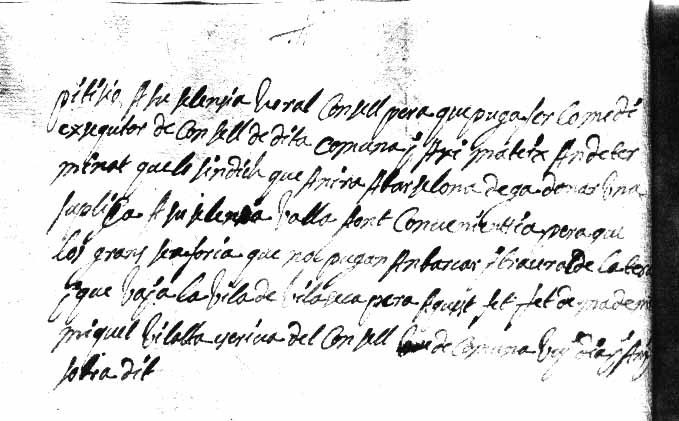 pitisio A su selensia Y oral Consell pera que puga ser Com edi
exsequtor de Consell de dita comuna y Axi mateix An deter
minat que lo sindich que Anira A barselona dega donar Una
suplica A su selensia balla sent Convenientsia pera que
los grans se asoria que no pugan Anbarcar i traurer de la terra
y que baja la Vila de Vilaseca pera Aquest fet fet de ma de mi
miquel Vilalta escriva del Consell de Comuna buy dia y Any
sobra dit